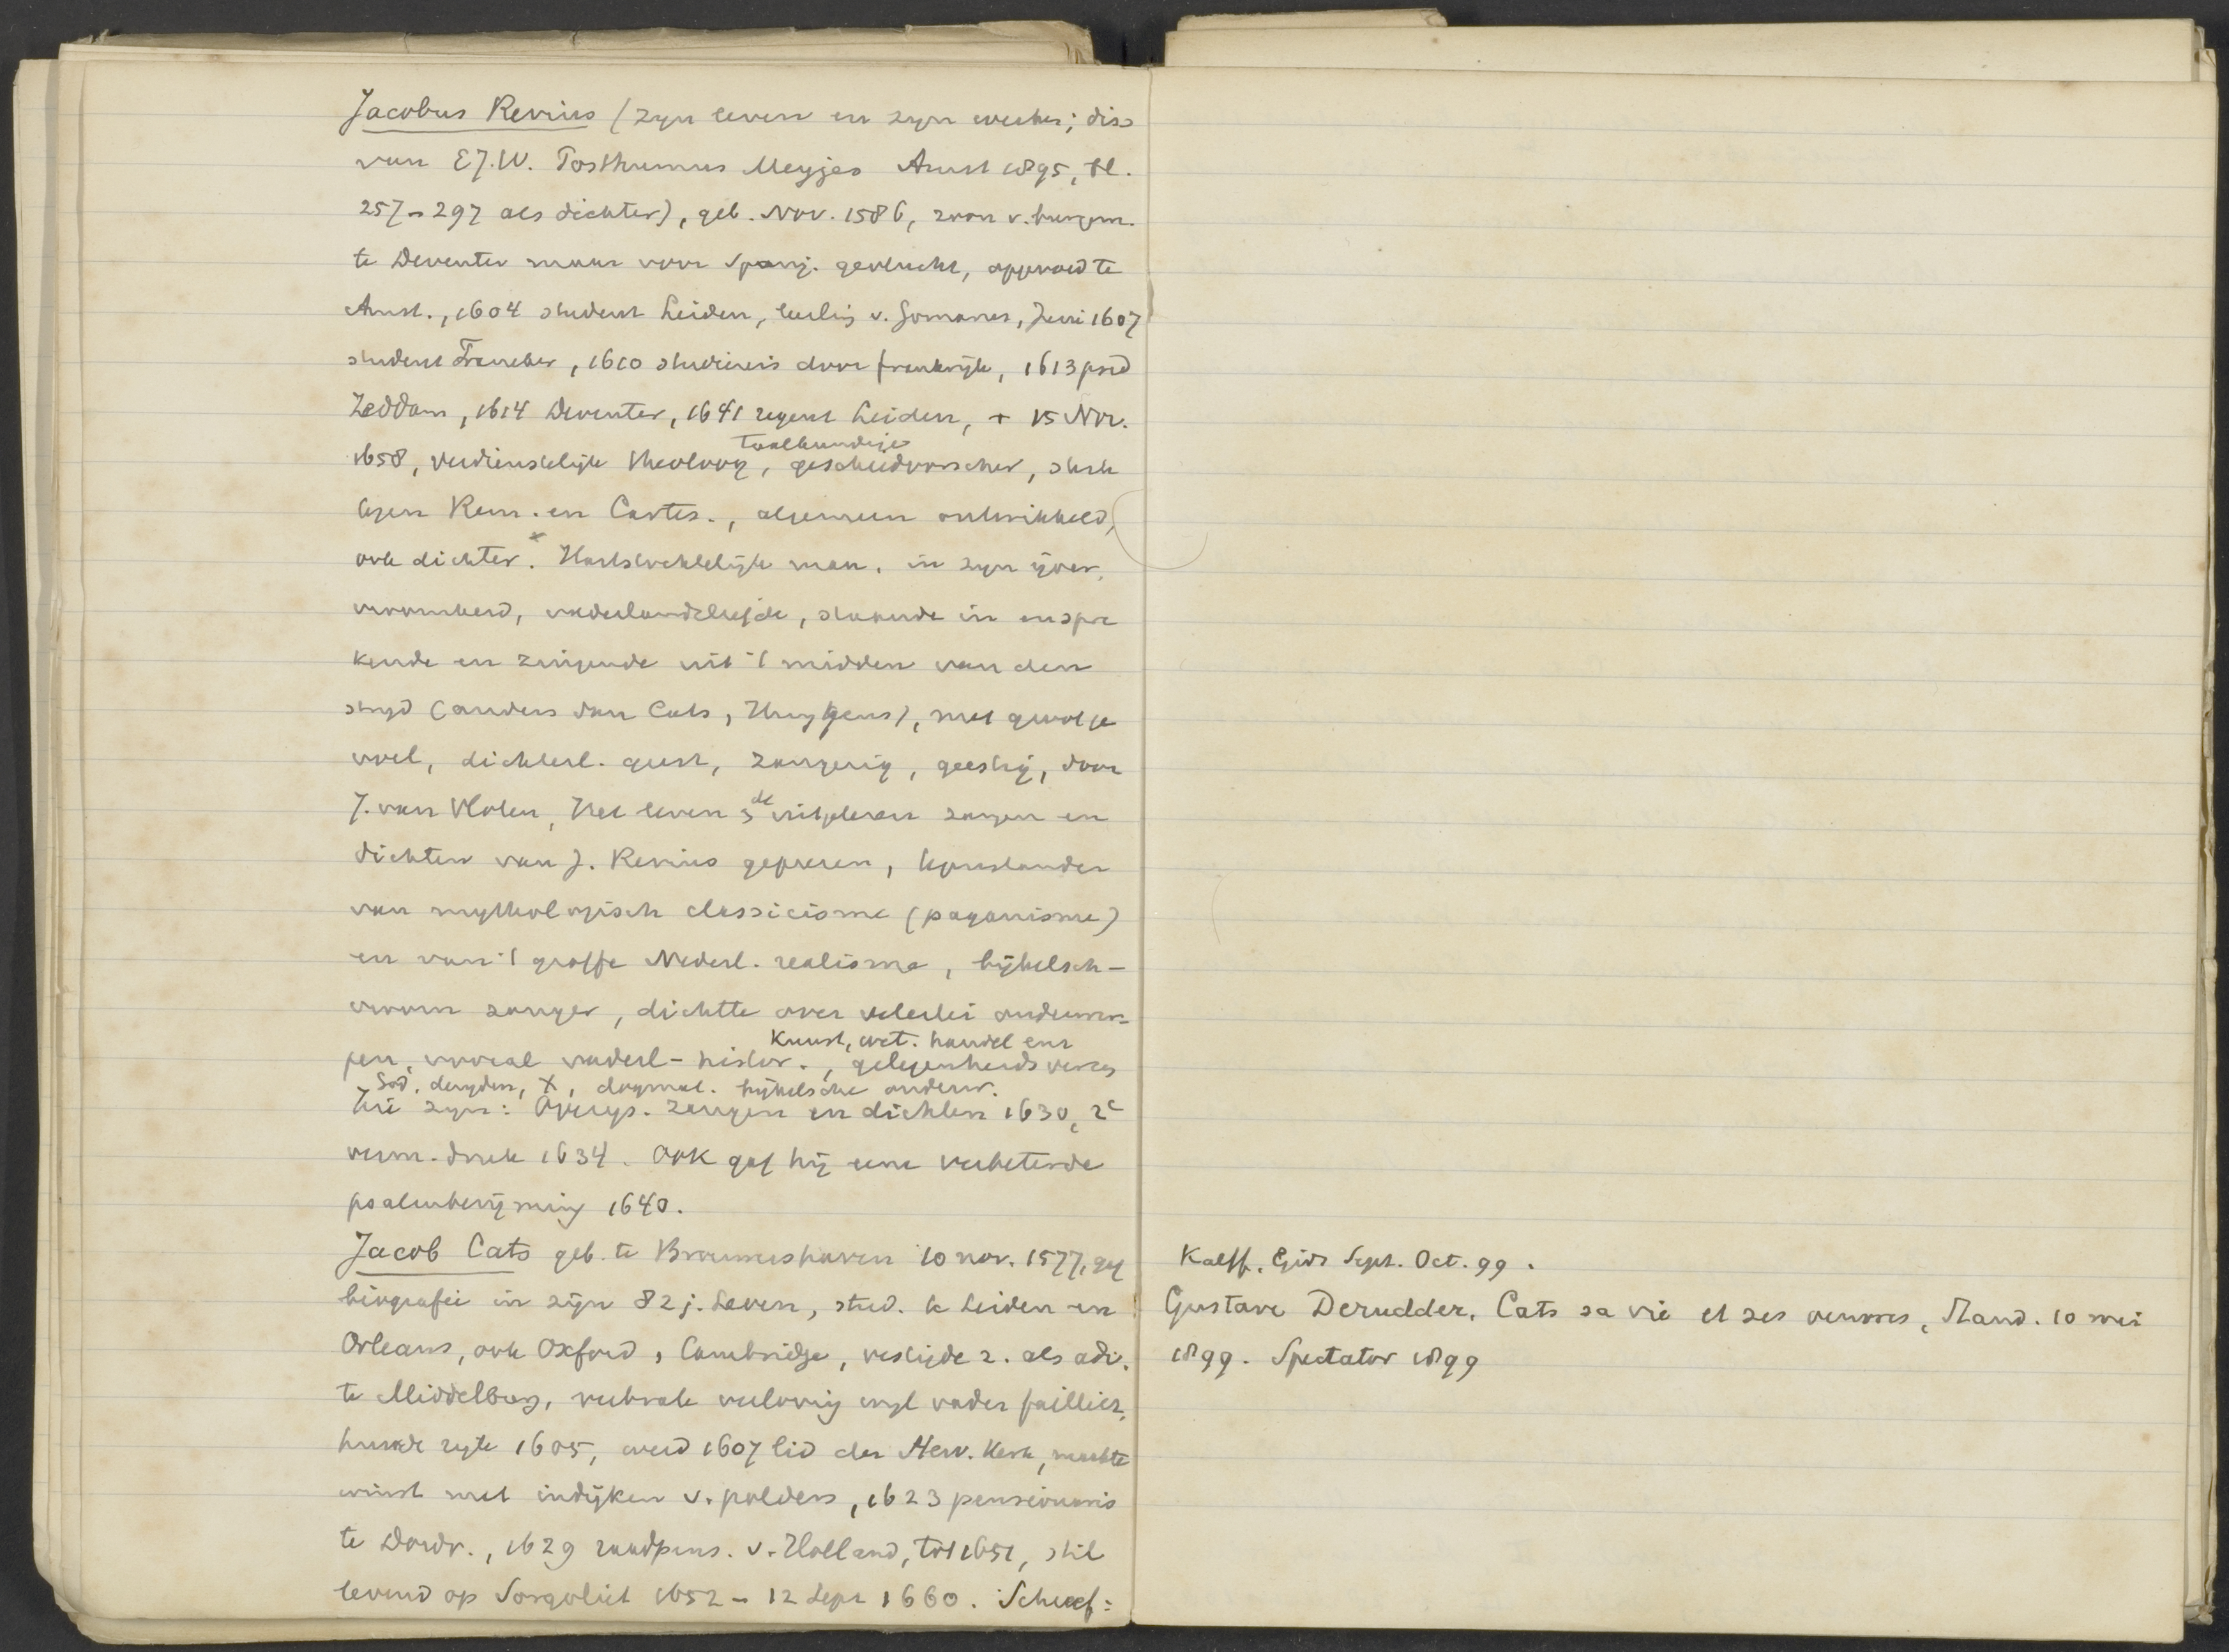 Jacobus Revius (zijn leven en zijn werken; diss
van E.J.W. Posthumus Meyjes Amst 1895, bl.
257-297 als dichter), geb. Nov. 1586, zoon v. burgem.
te Deventer maar voor Spanj. gevlucht, opgevoed te
Amst., 1604 student Leiden, leerling v. Gomarus, Juni 1607
student Franeker, 1610 studiereis door frankrijk, 1613 pred
Zeddam, 1614 Deventer, 1641 regent Leiden, + 15 Nov.
taalkundige
1658, verdienstelijk theoloog, geschiedvorscher, sterk
tegen Rem. en Cartes., algemeen ontwikkeld,
ook dichter. x Hartstochtelijk man, in zijn ijver,
vroomheid, vaderlandsliefde, staande in en spre
kende en zingende uit 't midden van den
strijd (anders dan Cats, Huygens), met gloed ge
voel, dichterl. geest, zangerig, geestig, door
J. van Vloten, Het leven & de uitgelezen zangen en
dichten van J. Revius geprezen, tegenstander
van mythologisch classicisme (paganisme)
en van 't groffe Nederl. realisme, bijbelsch-
vroom zanger, dichtte over velerlei onderwer-
kunst, wet. handel enz
pen, vooral vaderl-histor., gelegenheidsverzen
God, deugden, X, dogmat. bijbelsche onderw.
Zie zijn: Overys. zangen en dichten 1630, 2e
verm. druk 1634. Ook gaf hij eene verbeterde
psalmberijming 1640.
Jacob Cats geb. te Brouwershaven 10 nov. 1577, gaf
biografie in zijn 82 j. Leven, stud. te Leiden en
Orleans, ook Oxford, Cambridge, vestigde z. als adv.
te Middelburg, verbrak verloving wijl vader failliet,
huwde rijke 1605, werd 1607 lid der Herv. kerk, maakte
winst met indijken v. polders, 1623 pensionaris
te Dordr., 1629 raadpens. v. Holland, tot 1651, stil
levend op Sorgvliet 1652 - 12 Sept 1660. Schreef:
Kalff. Gids Sept. Oct. 99.
Gustave Derudder, Cats sa vie et ses oeuvres, Stand. 10 mei
1899. Spectator 1899